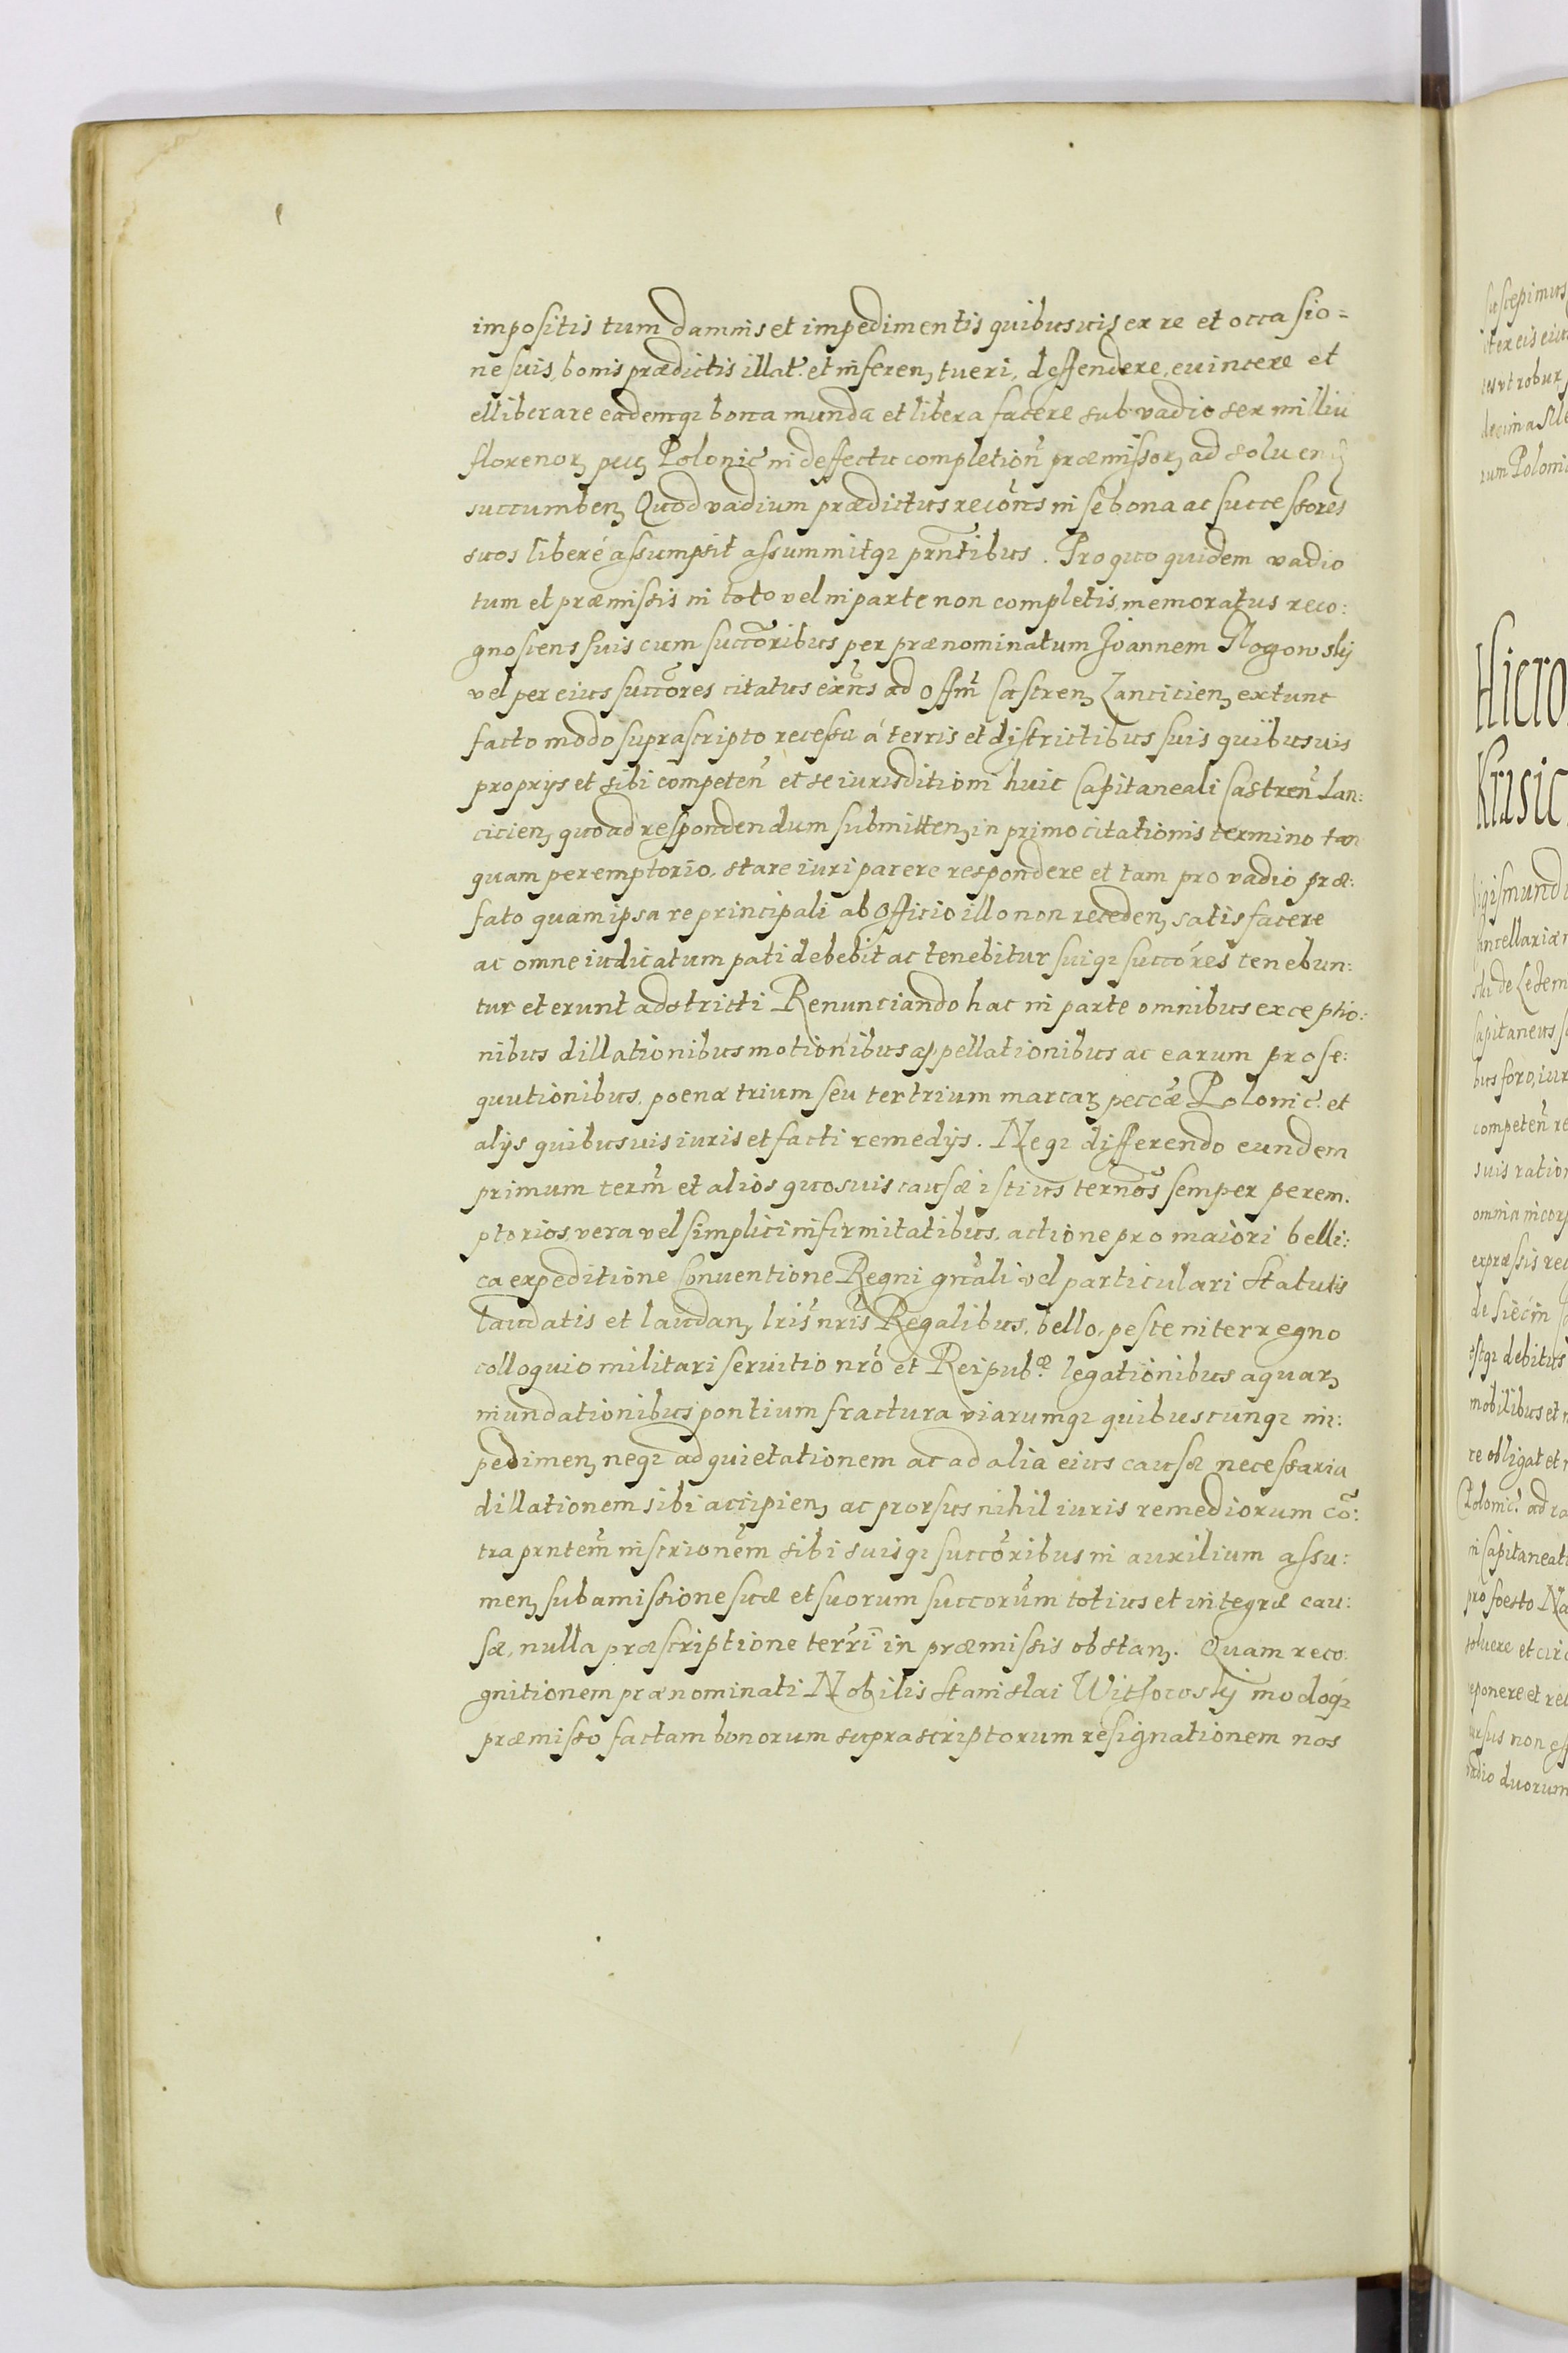 impositis tum damnis et impedimentis quibusuis ex re et occasio=
ne suis, bonis prædictis illat. et inferenꝫ tueri, deffendere, euincere et
elliberare eademqꝫ bona munda et libera facere sub vadio sex milliu
florenorꝫ pecꝫ Polonic̃ in deffectu completion̄ præmissorꝫ ad soluenꝫ
succumbenꝫ Quod vadium prædictus recōns in se bona ac successores
suos liberé assumpsit assummitqꝫ prn̄tibus. Pro quo quidem vadio
tum et præmissis in toto vel in parte non completis, memoratus reco:
gnoscens suis cum succōribus per prænominatum Joannem Glogowskÿ
vel per eius succōres citatus exn̄s ad Offm̄ Castrenꝫ Lancicienꝫ extunc
facto modo suprascripto recessu á terris et districtibus suis quibusuis
proprijs et sibi competen̄ et se iurisditioni huic Capitaneali Castren̄ Lan:
cicienꝫ quo ad respondendum submittenꝫ in primo citationis termino tan
quam peremptorio, stare iuri parere respondere et tam pro vadio præ:
fato quam ipsa re principali ab Officio illo non recedenꝫ satisfacere
ac omne iudicatum pati debebit ac tenebitur suiqꝫ succōres tenebun:
tur et erunt adstricti Renunciando hac in parte omnibus exceptio:
nibus dillationibus motionibus appellationibus ac earum prose:
quutionibus, poena trium seu ter trium marcarꝫ peccæ̃ Polonic̃. et
alijs quibusuis iuris et facti remedijs. Neqꝫ differendo eundem
primum term̄ et alios quosuis causæ istius ternōs semper perem.
ptorios, vera vel simplici infirmitatibus, actione pro maiori belli:
ca expeditione Conuentione Regni gnāli vel particulari Statutis
laudatis et laudanꝫ lrīs nrīs Regalibus, bello, peste interregno
colloquio militari seruitio nrō et Reipub.æ legationibus aquarꝫ
inundationibus pontium fractura viarumqꝫ quibuscunqꝫ im:
pedimenꝫ neqꝫ ad quietationem ac ad alia eius causæ necessaria
dillationem sibi accipienꝫ ac prorsus nihil iuris remediorum cō:
tra prntem̄ inscrionēm sibi suisqꝫ succōribus in auxilium assu:
menꝫ sub amissione suæ et suorum succorūm totius et integræ cau:
sæ, nulla præscriptione terrī in præmissis obstanꝫ. Quam reco
gnitionem prænominati Nobilis Stanislai Witkowskÿ modoqꝫ
præmisso factam bonorum suprascriptorum resignationem nos
suscepimus
decima
rum Poloni
Hiero
Krusic
de Lezem
Capitaneus
bus foro, iur
competen̄ re
suis ration
omnia incorp
expressis rec
estqꝫ debitus
mobilibus et
re obligat et
Polonic̃. ad ra
in Capitaneat
pro foesto Na
soluere et circ
ursus non eff
vadio duorum